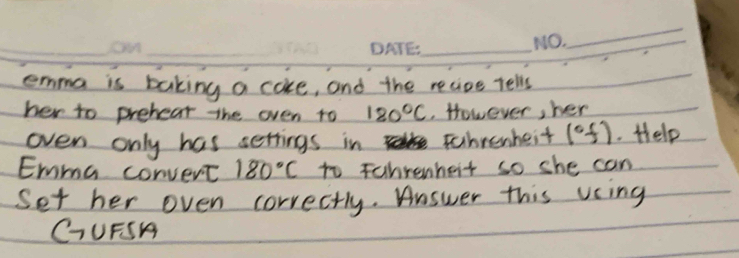 DATE: NO.
emma is baking a cake, and the recipe tells
her to preheat the oven to 180°C. However, her
oven only has settings in Fahrenheit (°f). Help
Emma convert 180°C to Fahrenheit so she can
Set her oven correctly. Answer this using
GUFSA